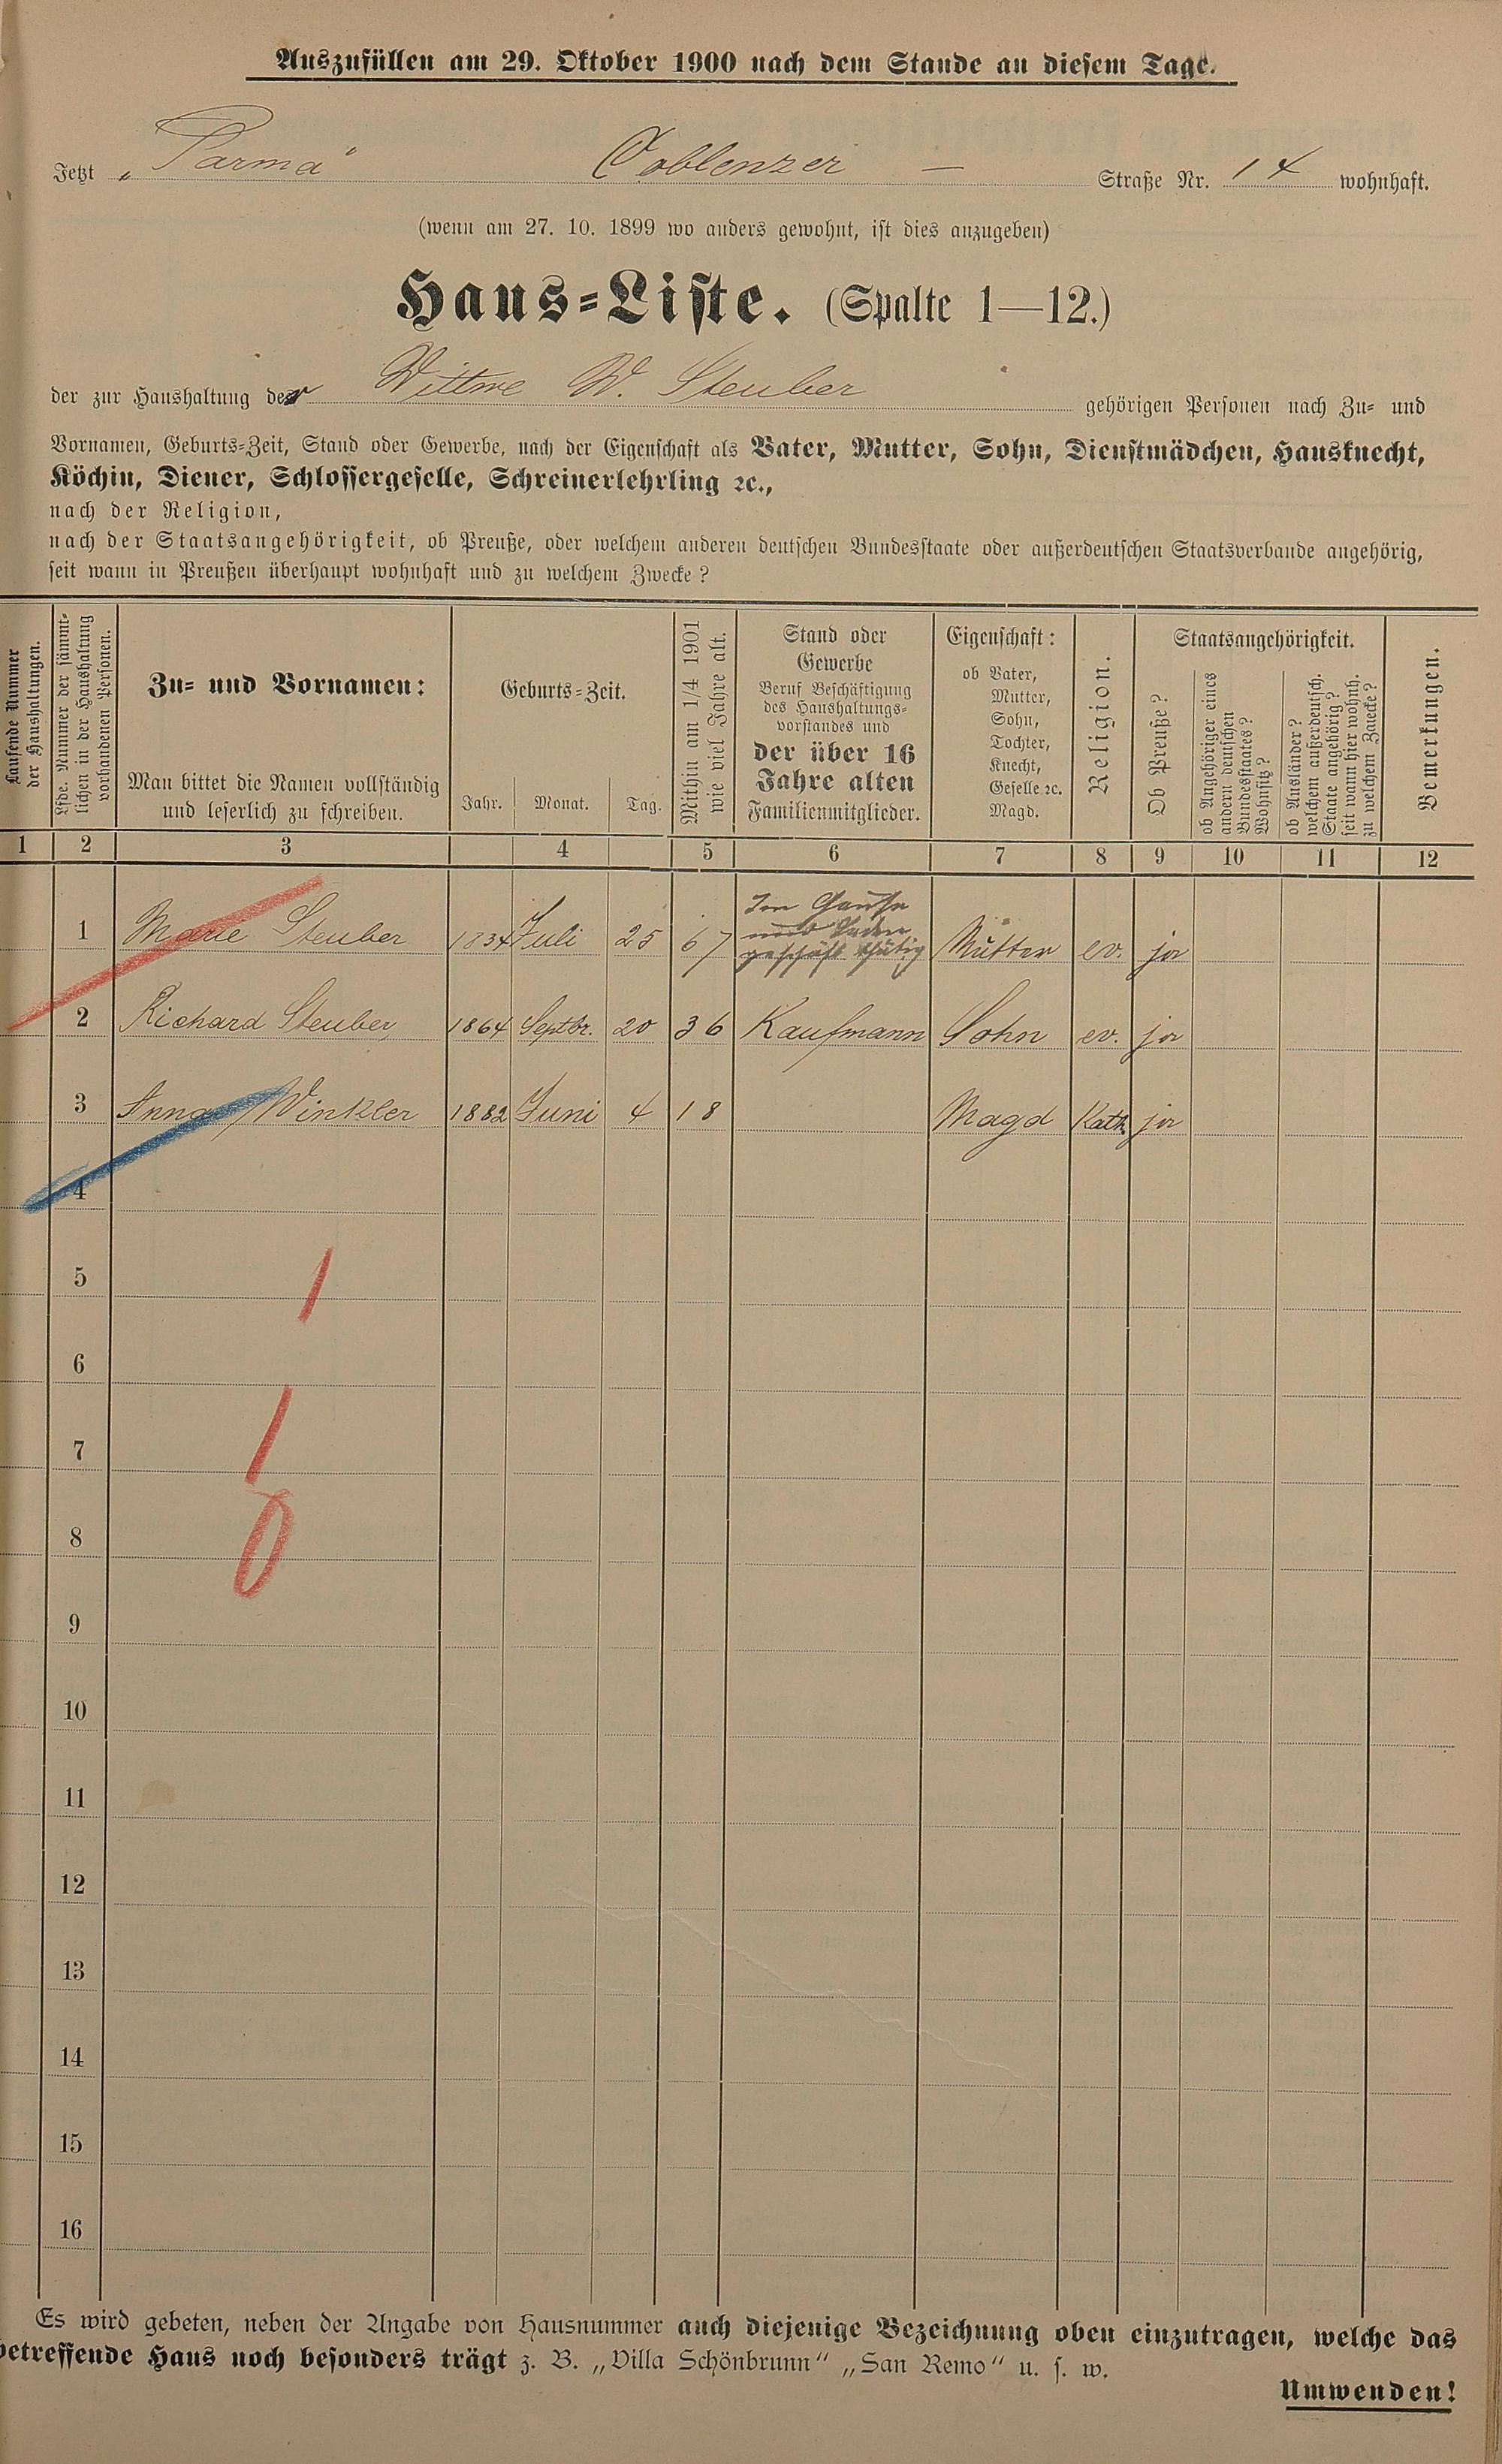 Auszufüllen am 29. Oktober 1900 nach dem Stande an diesem Tage.
Jetzt „Parma“ Coblenzer — Straße Nr. 14 wohnhaft.
(wenn am 27. 10. 1899 wo anders gewohnt, ist dies anzugeben)
Haus-Liste. (Spalte 1—12.)
der zur Haushaltung der Wittwe W. Steuber gehörigen Personen nach Zu- und
Vornamen, Geburts-Zeit, Stand oder Gewerbe, nach der Eigenschaft als Vater, Mutter, Sohn, Dienstmädchen, Hausknecht,
Köchin, Diener, Schlossergeselle, Schreinerlehrling ꝛc.,
nach der Religion,
nach der Staatsangehörigkeit, ob Preuße, oder welchem anderen deutschen Bundesstaate oder außerdeutschen Staatsverbande angehörig,
seit wann in Preußen überhaupt wohnhaft und zu welchem Zwecke?
Laufende Nummer
der Haushaltungen.
Lfde. Nummer der sämmt-
lichen in der Haushaltung
vorhandenen Personen.
Zu- und Vornamen:
Man bittet die Namen vollständig
und leserlich zu schreiben.
Geburts-Zeit.
Jahr. Monat. Tag.
Mithin am 1/4 1901
wie viel Jahre alt.
Stand oder
Gewerbe
Beruf Beschäftigung
des Haushaltungs-
vorstandes und
der über 16
Jahre alten
Familienmitglieder.
Eigenschaft:
ob Vater,
Mutter,
Sohn,
Tochter,
Knecht,
Geselle ꝛc.
Magd.
Religion.
Staatsangehörigkeit.
Ob Preuße?
ob Angehöriger eines
andern deutschen
Bundesstaates?
Wohnsitz?
ob Ausländer?
welchem außerdeutsch.
Staate angehörig?
seit wann hier wohnh.
zu welchem Zwecke?
Bemerkungen.
1 2 3 4 5 6 7 8 9 10 11 12
1 Marie Steuber 1834 Juli 25 67 Im Hause und Laden geschäft thätig Mutter ev. ja
2 Richard Steuber 1864 Septbr. 20 36 Kaufmann Sohn ev. ja
3 Anna Winkler 1882 Juni 4 18 Magd Kath. ja
4
5
6
7
8
9
10
11
12
13
14
15
16
Es wird gebeten, neben der Angabe von Hausnummer auch diejenige Bezeichnung oben einzutragen, welche das
betreffende Haus noch besonders trägt z. B. „Villa Schönbrunn“ „San Remo“ u. s. w.
Umwenden!